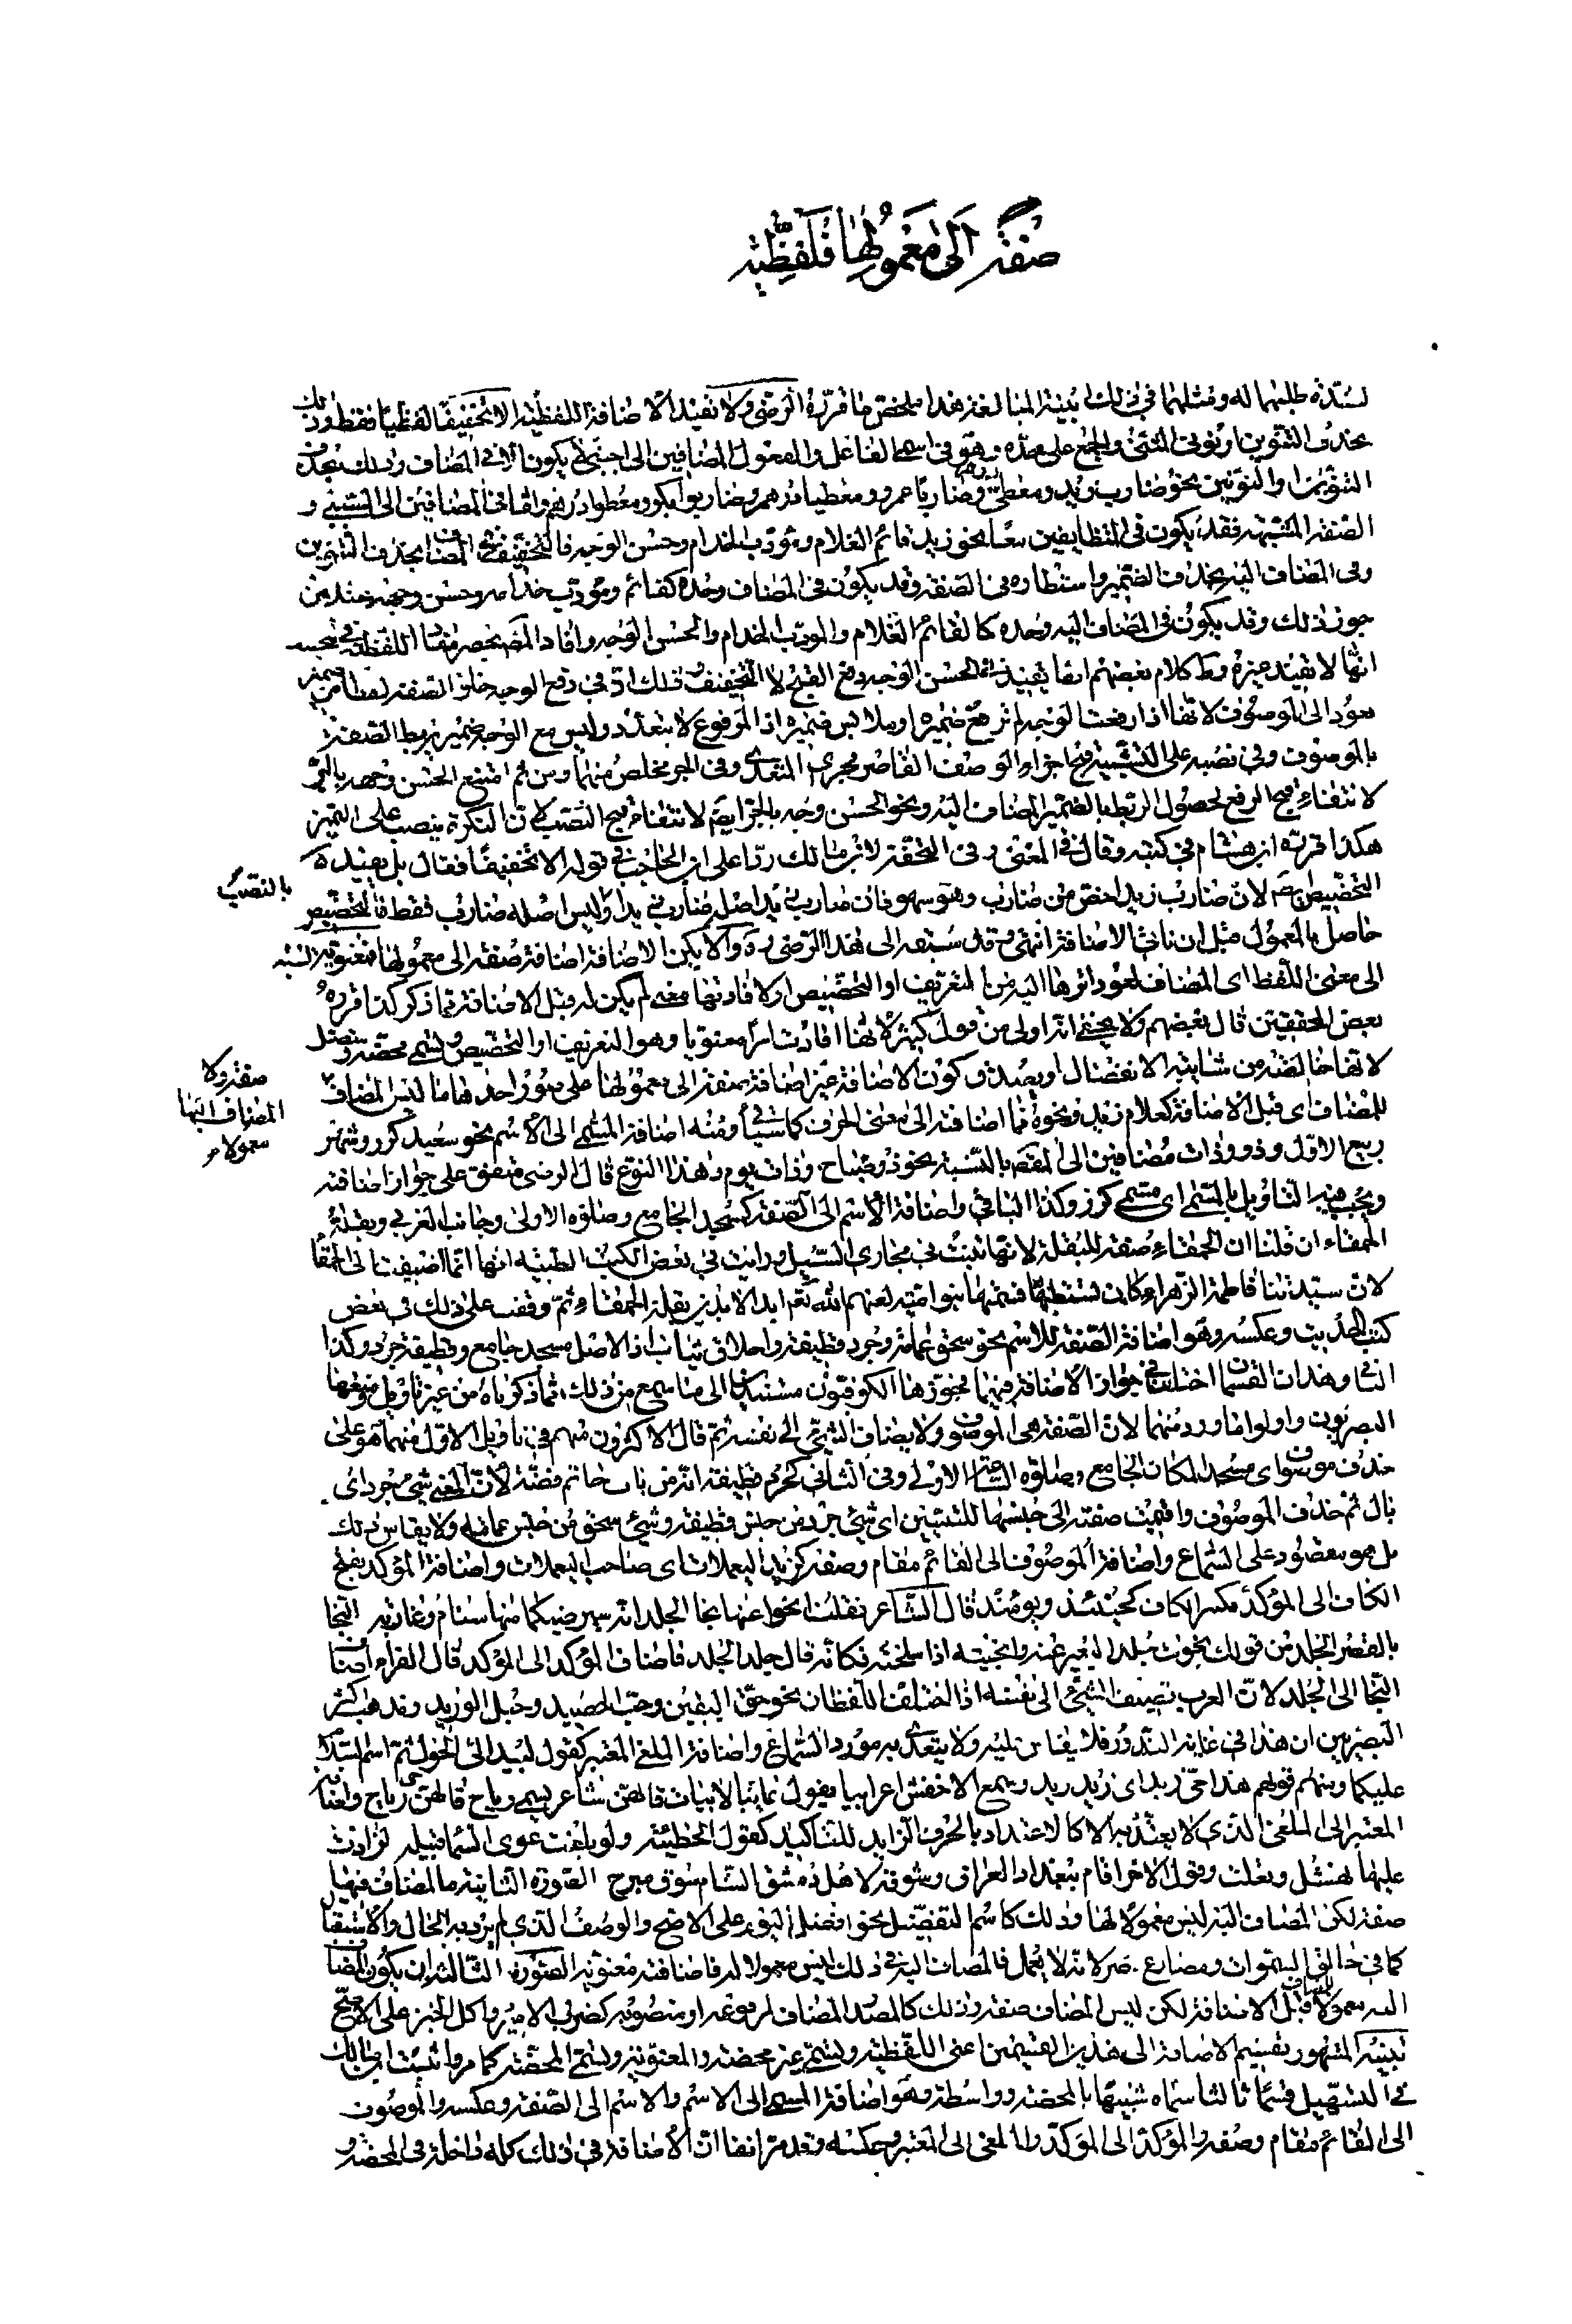 صفة الى معمولها فلفظية
لشدة طلبها له ومثلهما في ذلك ابنية المبالغة هذا ملخص ما قرره الرضي ولا تفيد الاضافة اللفظية الا تخفيفا لفظيا فقط وذلك
بحذف التنوين او نوني المثنى والجمع على حده وهو في اسم الفاعل والمفعول المضافين الى اجنبي يكونان في المضاف وذلك بحذف
التنوين او النونين نحو ضارب زيد ومعطى درهم وضاربا عمرو ومعطيا درهم وضاربوا بكر ومعطوا درهم واما في المضافين الى السببي و
الصفة المشبهة فقد يكون في المتضايفين معا نحو زيد قائم الغلام ومؤدب الخدام وحسن الوجه فالتخفيف في المضاف بحذف التنوين
وفي المضاف اليه بحذف الضمير واستتاره في الصفة وقد يكون في المضاف وحده كقائم ومؤدب خدامه وحسن وجهه عند من
جوز ذلك وقد يكون في المضاف اليه وحده كالقائم الغلام والمودب الخدام والحسن الوجه وافاد المص بحصر مفاد اللفظية في تخفيفه
انها لا تفيد غيره وفي كلام بعضهم انها تفيد في الحسن الوجه رفع القبح لا التخفيف وذلك ان في رفع الوجه خلو الصفة لفظا من ضمير
يعود الى الموصوف لانها اذا رفعت الوجه لم ترفع ضميره او ملابس ضميره اذ المرفوع لا يتعدد وليس مع الوجه ضمير يربط الصفة
بالموصوف وفي نصبه على التشبيه قبح اجراء الوصف القاصر مجرى المتعدي وفي الجر مخلص منهما ومن ثم امتنع الحسن وجهه بالجر
لانتفاء قبح الرفع لحصول الربط بالضمير المضاف اليه ونحو الحسن وجه بالجر ايضا لانتفاء قبح النصب لان النكرة تنصب على التمييز
هكذا قرره ابن هشام في كتبه وقال في المغني وفي التحفة لابن مالك ردا على ابن الحاجب في قوله الا تخفيفا فقال بل تفيد
التخصيص ايضا لان ضارب زيد اخص من ضارب وهو سهو فان ضارب زيد اصله ضارب زيدا وليس اصله ضارب فقط فالتخصيص
بالنصب
حاصل بالمعمول قبل ان تاتي الاضافة انتهى وقد سبقه الى هذا الرضي ره والا يكن الاضافة اضافة صفة الى معمولها فمعنوية لنسبه
الى معنى اللفظ اي المضاف لعود اثرها اليه من التعريف او التخصيص او لافادتها معنى لم يكن له قبل الاضافة مما ذكر كذا قرره
بعض المحققين قال بعضهم ولا يخفى انه اولى من قول كثير لانها افادت امرا معنويا وهو التعريف او التخصيص وتسمى محضة ومتصلة
لانها خالصة من شائبة الانفصال او يصدق كون الاضافة غير اضافة صفة الى معمولها على صور احدها ما ليس المضاف
صفة ولا
المضاف اليها
معمولا
للمضاف اي قبل الاضافة كغلام زيد ونحوه مما اضافته الى معنى الحرف كما سيأتي ومنه اضافة المسمى الى الاسم نحو سعيد كرز وشهر
ربيع الاول وذو وذات مضافين الى المقصود بالنسبة نحو ذو صباح وذات يوم وهذا النوع قال الرضي متفق على جواز اضافته
ويجب فيه التاويل بالمسمى اي مسمى كرز وكذا الباقي واضافة الاسم الى الصفة كمسجد الجامع وصلوة الاولى وجانب الغربي وبقلة
الحمقاء ان قلنا ان الحمقاء صفة للبقلة لانها تنبت في مجاري السيل ورايت في بعض الكتب الطبية انها انما اضيفت الى الحمقاء
لان سيدتنا فاطمة الزهراء كانت بنوا امية لعنهم الله بقلة الحمقاء ثم وقفت على ذلك في بعض
كتب الحديث وعكسه وهو اضافة الصفة للاسم نحو سحق عمامة وجرد قطيفة واخلاق ثياب اذ الاصل مسجد جامع وقطيفة جرد وكذا
الباقي وهذان القسمان اختلف في جواز الاضافة فيهما فجوزها الكوفيون مستندين الى ما سمع من ذلك مما ذكرناه من غير تاويل ومنعها
البصريون واولوا ما ورد منهما لان الصفة هي الموصوف ولا يضاف الشيء الى نفسه ثم قال الاكثرون منهم في تاويل الاول منهما هو على
حذف موصوف اي مسجد المكان الجامع وصلوة الساعة الاولى وفي الثاني كجرد قطيفة انه من باب خاتم فضة لان المعنى شيء جرد اي
بال ثم حذف الموصوف واقيمت صفته الى جنسها للتبيين اي شيء جرد من جنس قطيفة وشيء سحق من جنس عمامة ولا يقاس ذلك
بل هو مقصود على السماع واضافة الموصوف الى القائم مقام وصفه كزيد اليعملات اي صاحب اليعملات واضافة المؤكد بفتح
الكاف الى المؤكد بكسر الكاف كحينئذ ويومئذ قال الشاعر فقلت انجوا عنها نجا الجلد انه سيرضيكما منها سنام وغاربه النجا
بالقصر الجلد من قولك نجوت جلد البعير عنه وانجيته اذا سلخته فكانه قال جلد الجلد فاضاف المؤكد الى المؤكد قال الفراء اضاف
النجا الى الجلد لان العرب تضيف الشيء الى نفسه اذا اختلف اللفظان نحو حق اليقين وحب الحصيد وحبل الوريد ومذهب اكثر
البصريين ان هذا في غاية الندور فلا يقاس عليه ولا يتعدى به مورد السماع واضافة الملغى الى المعتبر كقول لبيد الى الحول ثم اسم السلام
عليكما ومنهم قولهم هذا حي زيد اي زيد وسمع الاخفش اعرابيا يقول في ابيات قالهن شاعر يسمى رياح قالهن حي رياح واضافة
المعتبر الى الملغى الذي لا يعتد به الا كالاعتداد بالحرف الزايد للتاكيد كقول الحطيئة ولو بلغت عوى السما قبيلة لزادت
عليها نهشل وتعلت وقول الاخر اقام ببغداد العراق وشوقه لاهل دمشق الشام شوق مبرح الصورة الثانية ما المضاف فيها
صفة لكن المضاف اليه ليس معمولا لها وذلك كاسم التفضيل نحو افضل القوم على الاصح والوصف الذي لم يرد به الحال والاستقبال
كما في خالق السموات ومصارع مصر لانه لا يعمل فالمضاف اليه في ذلك ليس معمولا له فاضافته معنوية الصورة الثالثة ان يكون المضاف
اليه معمولا للمضاف قبل الاضافة لكن ليس المضاف صفة وذلك كالمصدر المضاف لمرفوعه او منصوبه كضرب الامير واكل الخبز على الاصح
تنبيه المشهور تقسيم الاضافة الى هذين القسمين اعني اللفظية وتسمى غير محضة والمعنوية وتسمى المحضة كما مر واثبت ابن مالك
في التسهيل قسما ثالثا سماه شبيها بالمحضة وواسطة وهو اضافة المسمى الى الاسم والاسم الى الصفة وعكسه والموصوف
الى القائم مقام وصفه والمؤكد الى المؤكد والملغى الى المعتبر وعكسه وقد مر انفا ان الاضافة في ذلك كله داخلة في المحضة و